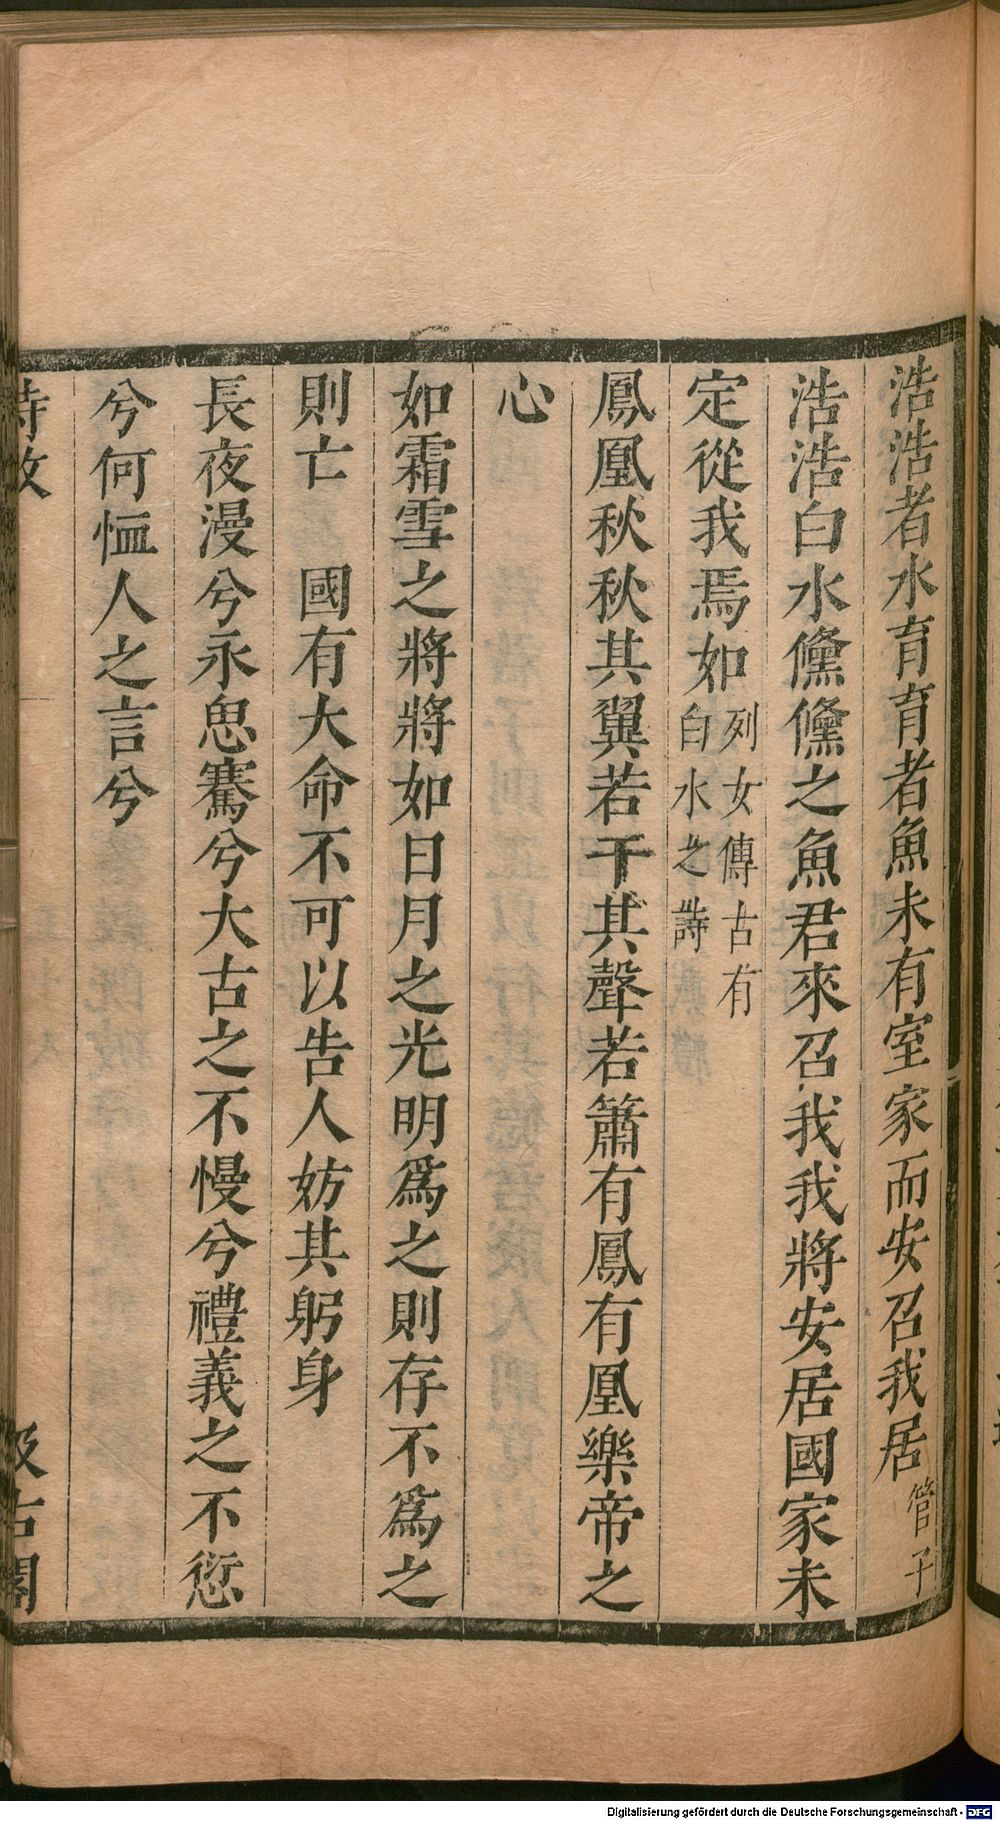 浩浩者水育育者魚未有室家而安召我居管子
浩浩白水儵儵之魚君來召我我將安居國家未
定從我焉如列女傳古有
白水之詩
鳳凰秋秋其翼若干其聲若簫有鳳有凰樂帝之
心
如霜雪之將將如日月之光明爲之則存不爲之
則亡　國有大命不可以告人妨其躬身
長夜漫兮永思騫兮大古之不慢兮禮義之不愆
兮何恤人之言兮
詩攷
汲古閣
Digitalisierung gefördert durch die Deutsche Forschungsgemeinschaft - DFG